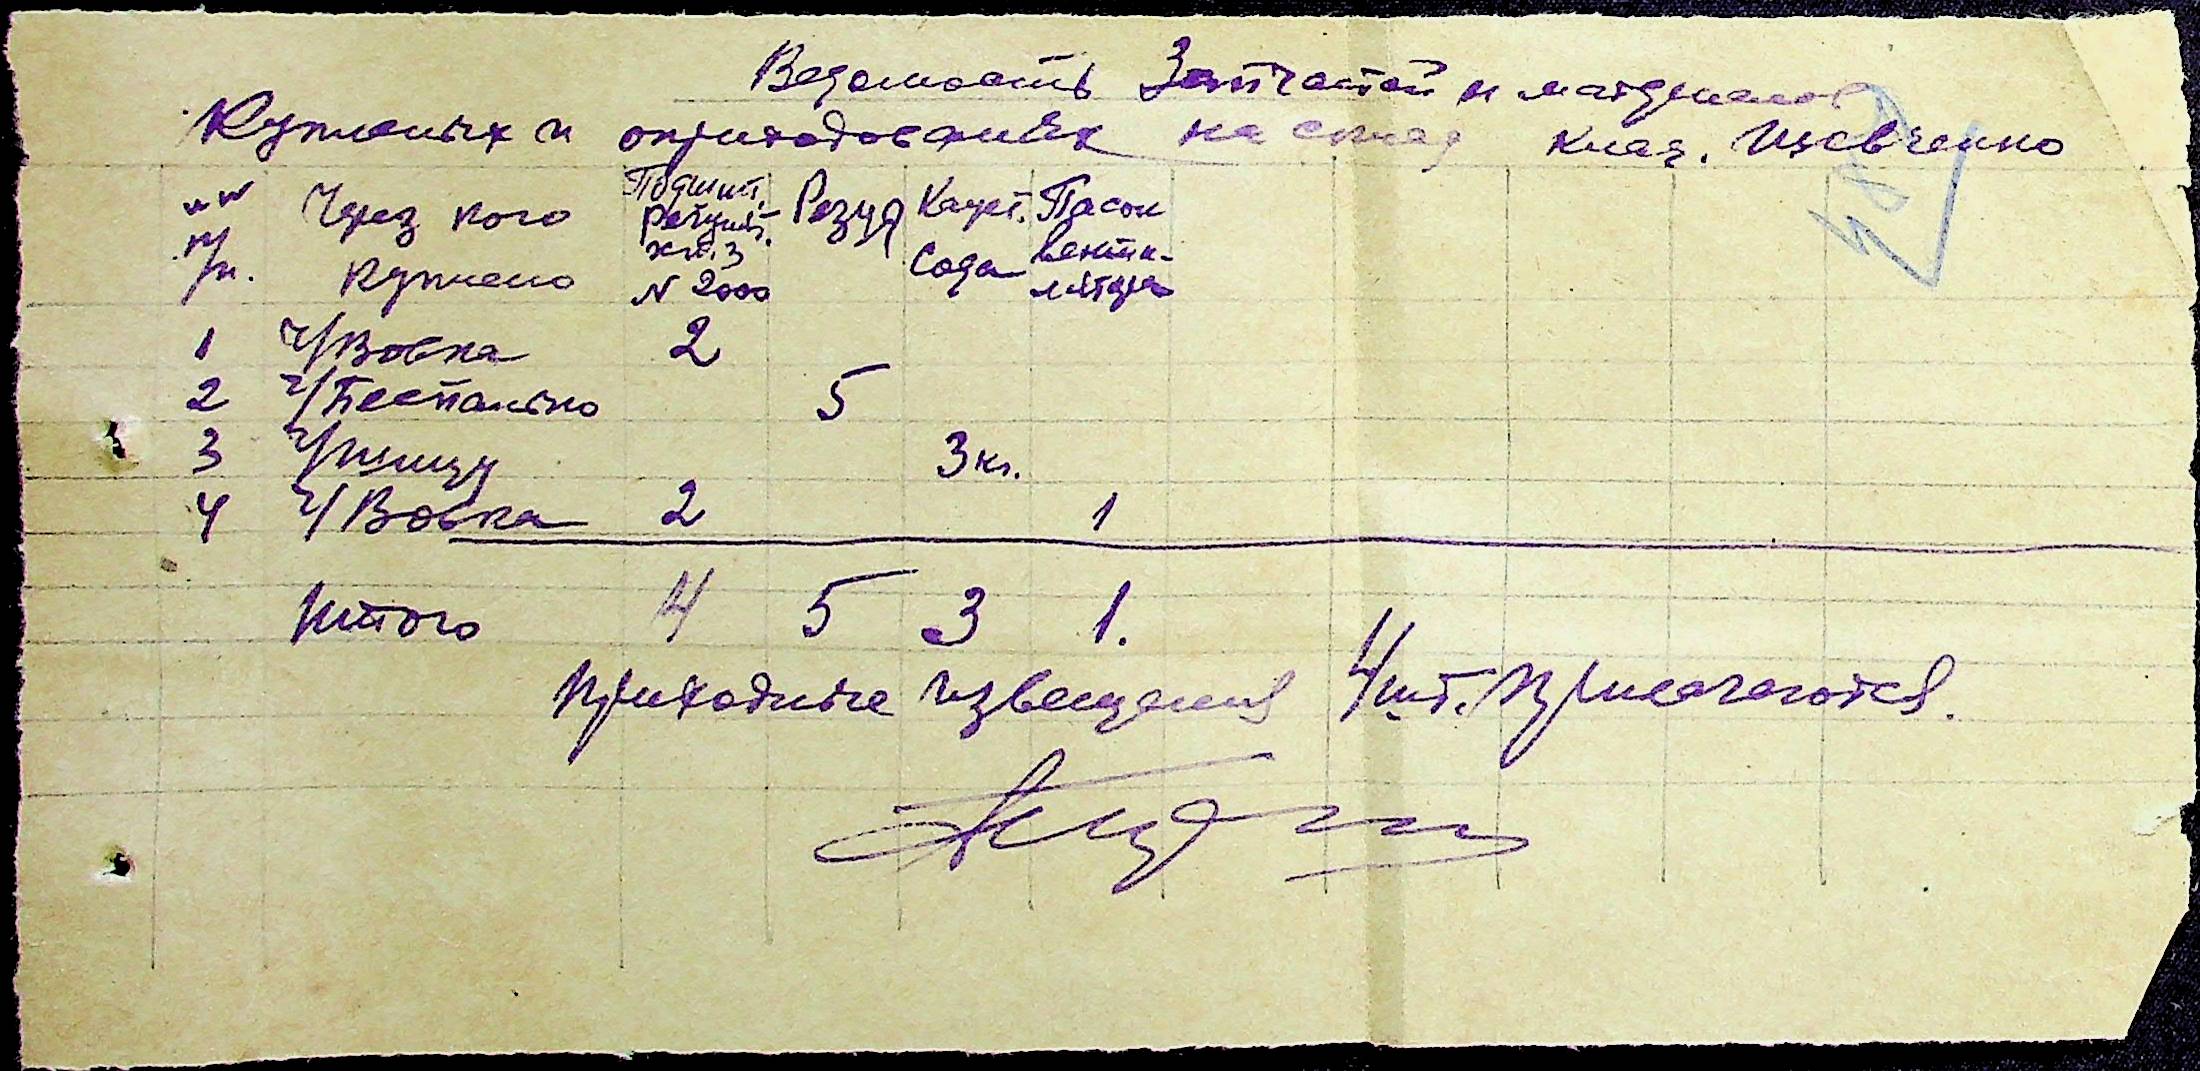 Ведомость Запчастей и материалов
Купленых и оприходованых на склад клад. Шевченко
№ № п/п. Через кого куплено Подшип. N 2000 Резця Кауст. Сода Пасок вентилятора
1 ч/Вовка 2
2 ч/Беспалько 5
3 3 кг.
4 ч/Вовка 2 1
Итого 4 5 3 1.
Приходные извещения 4 шт. прилагаются.